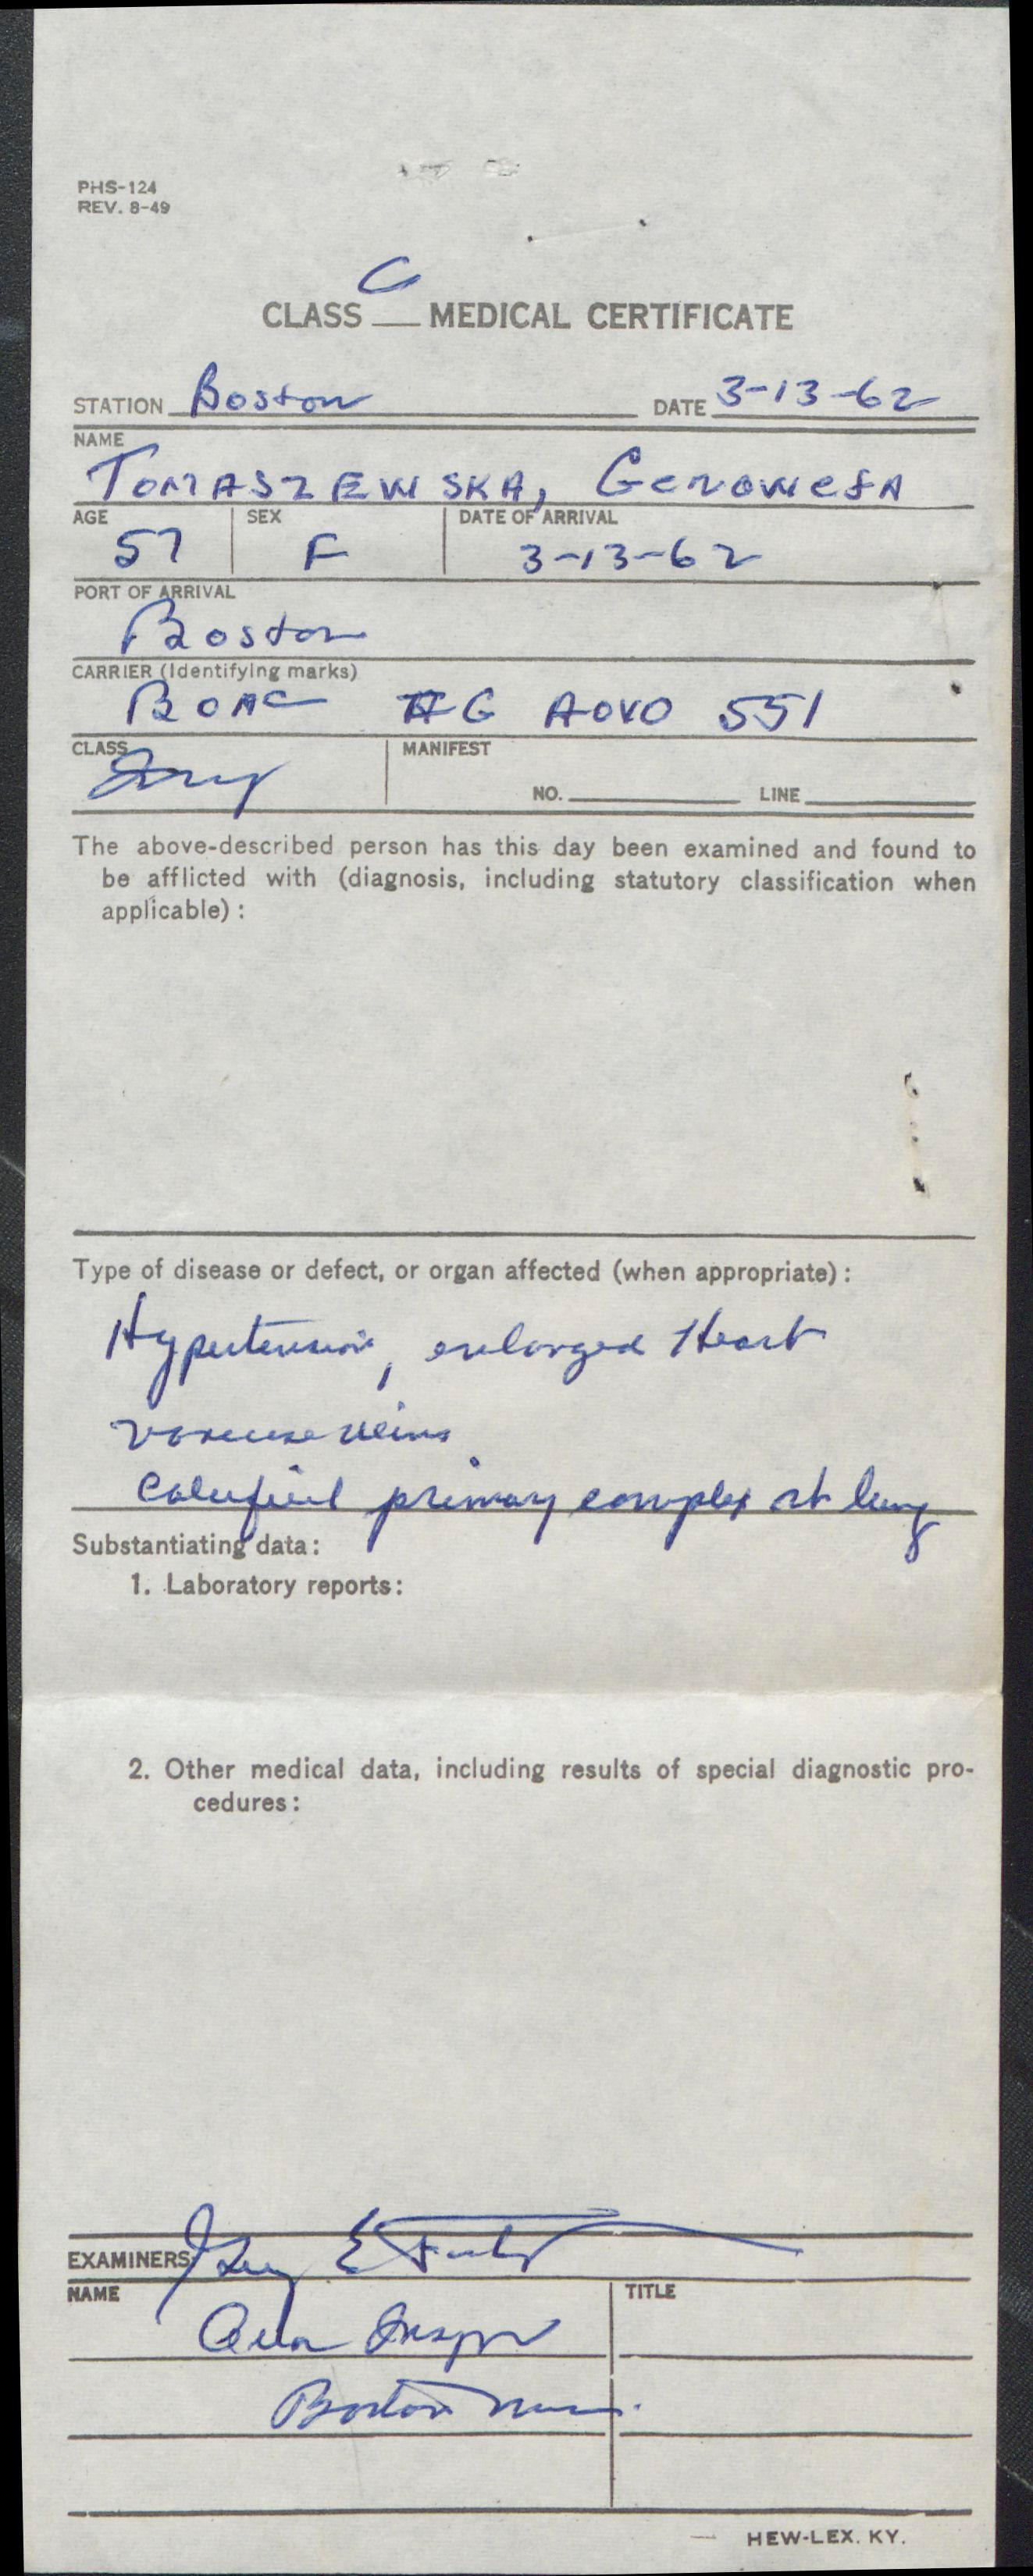 PHS-124
REV. 8-49
CLASS C MEDICAL CERTIFICATE
STATION Boston DATE 3-13-62
NAME
TOMASZEWSKA, GENOWEFA
AGE SEX DATE OF ARRIVAL
57 F 3-13-62
PORT OF ARRIVAL
Boston
CARRIER (Identifying marks)
BOAC AG AOVO 551
CLASS MANIFEST
NO. LINE
The above-described person has this day been examined and found to
be afflicted with (diagnosis, including statutory classification when
applicable):
Type of disease or defect, or organ affected (when appropriate):
Hypertension, enlarged Heart
varicose veins
Calcified primary complex rt lung
Substantiating data:
1. Laboratory reports:
2. Other medical data, including results of special diagnostic pro-
cedures:
EXAMINERS
NAME TITLE
Boston Mass.
HEW-LEX. KY.